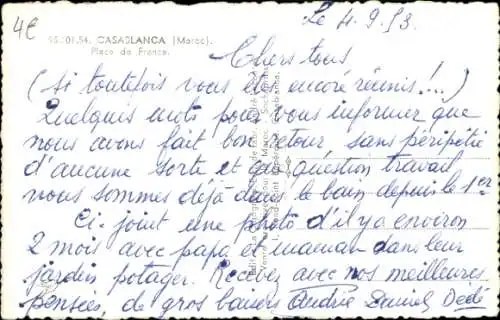 4€
Le 4.9.53.
95.101.54. CASABLANCA (Maroc).
Place de France.
Chers tous
(si toutefois vous êtes encore réunis!...)
Quelques mots pour vous informer que
nous avons fait bon retour sans péripétie
d'aucune sorte et que question travail
nous sommes déjà dans le bain depuis le 1er
Ci-joint une photo d'il y a environ
2 mois avec papa et maman dans leur
jardin potager. Recevez avec nos meilleures
pensées, de gros baisers Andrée Daniel Dédé